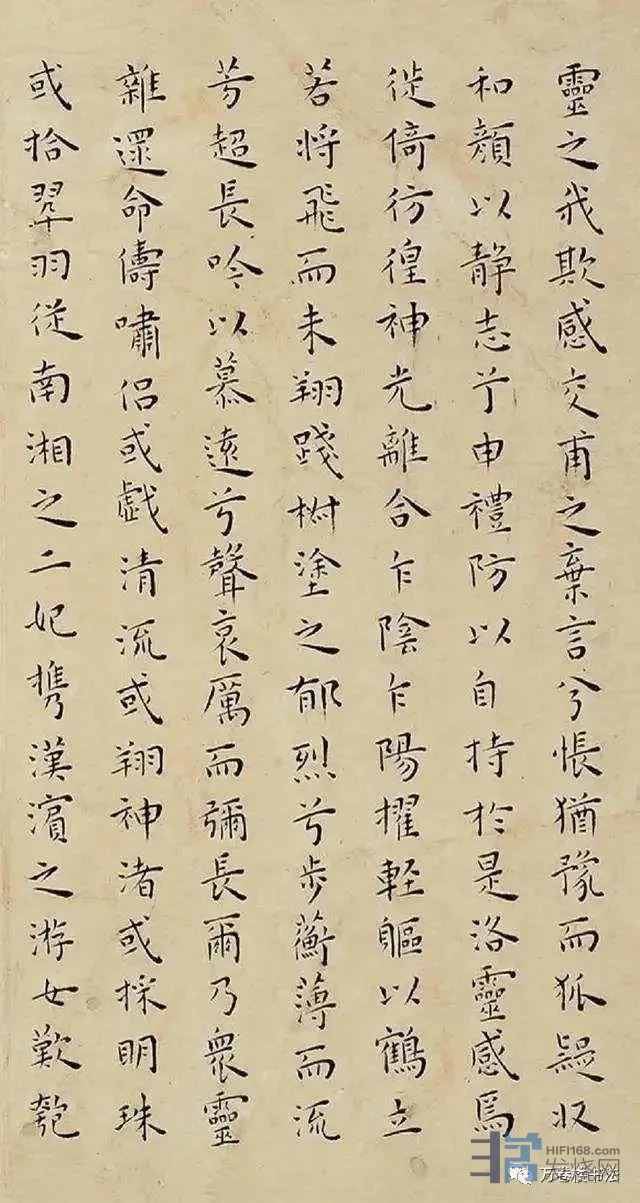 靈之我欺感交甫之棄言兮悵猶豫而狐疑収
和顔以静志兮申禮防以自持於是洛靈感焉
徙倚彷徨神光離合乍陰乍陽擢輕軀以鶴立
若將飛而未翔踐椒塗之郁烈兮步蘅薄而流
芳超長吟以慕遠兮聲哀厲而彌長爾乃衆靈
雜遝命儔嘯侶或戲清流或翔神渚或採明珠
或拾翠羽從南湘之二妃携漢濱之游女歎匏
HIFI168.com
发烧网
万卷楼书法